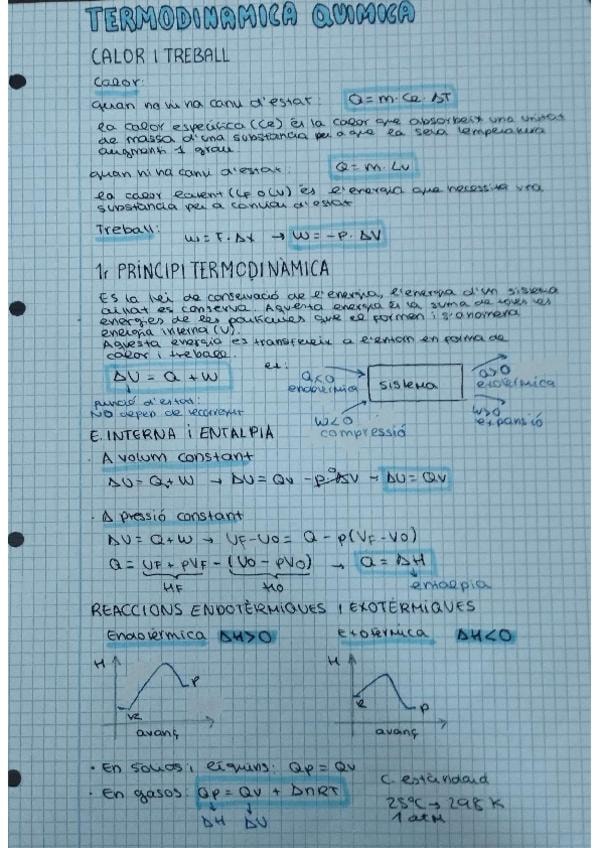 TERMODINAMICA QUIMICA
CALOR I TREBALL
Calor:
quan no hi ha canvi d'estat: Q = m · Ce · ΔT
la calor específica (Ce) és la calor que absorbeix una unitat
de massa d'una substància per a que la seva temperatura
augmenti 1 grau
quan hi ha canvi d'estat: Q = m · Lv
la calor latent (LF o LV) és l'energia que necessita una
substància per a canviar d'estat
Treball:
W = F · Δx → W = -P · ΔV
1r PRINCIPI TERMODINÀMICA
És la llei de conservació de l'energia, l'energia d'un sistema
aïllat es conserva. Aquesta energia és la suma de totes les
energies de les partícules que el formen i s'anomena
energia interna (U).
Aquesta energia es transfereix a l'entorn en forma de
calor i treball.
ΔU = Q + W
funció d'estat:
NO depen de recorregut
ex:
Q<0
endotèrmica
sistema
Q>0
exotèrmica
W<0
compressió
W>0
expansió
E. INTERNA i ENTALPIA
· A volum constant
ΔU = Q + W → ΔU = Qv - P·ΔV → ΔU = Qv
0
· A pressió constant
ΔU = Q + W → UF - U0 = Q - p(VF - V0)
Q = UF + PVF - (U0 - PV0) → Q = ΔH
HF H0 entalpia
REACCIONS ENDOTÈRMIQUES I EXOTÈRMIQUES
Endotèrmica ΔH>0 Exotèrmica ΔH<0
H R P avanç
H R P avanç
· En sòlids i líquids: Qp = Qv
· En gasos: Qp = Qv + ΔnRT
ΔH ΔU
C. estàndard
25ºC → 298 K
1 atm